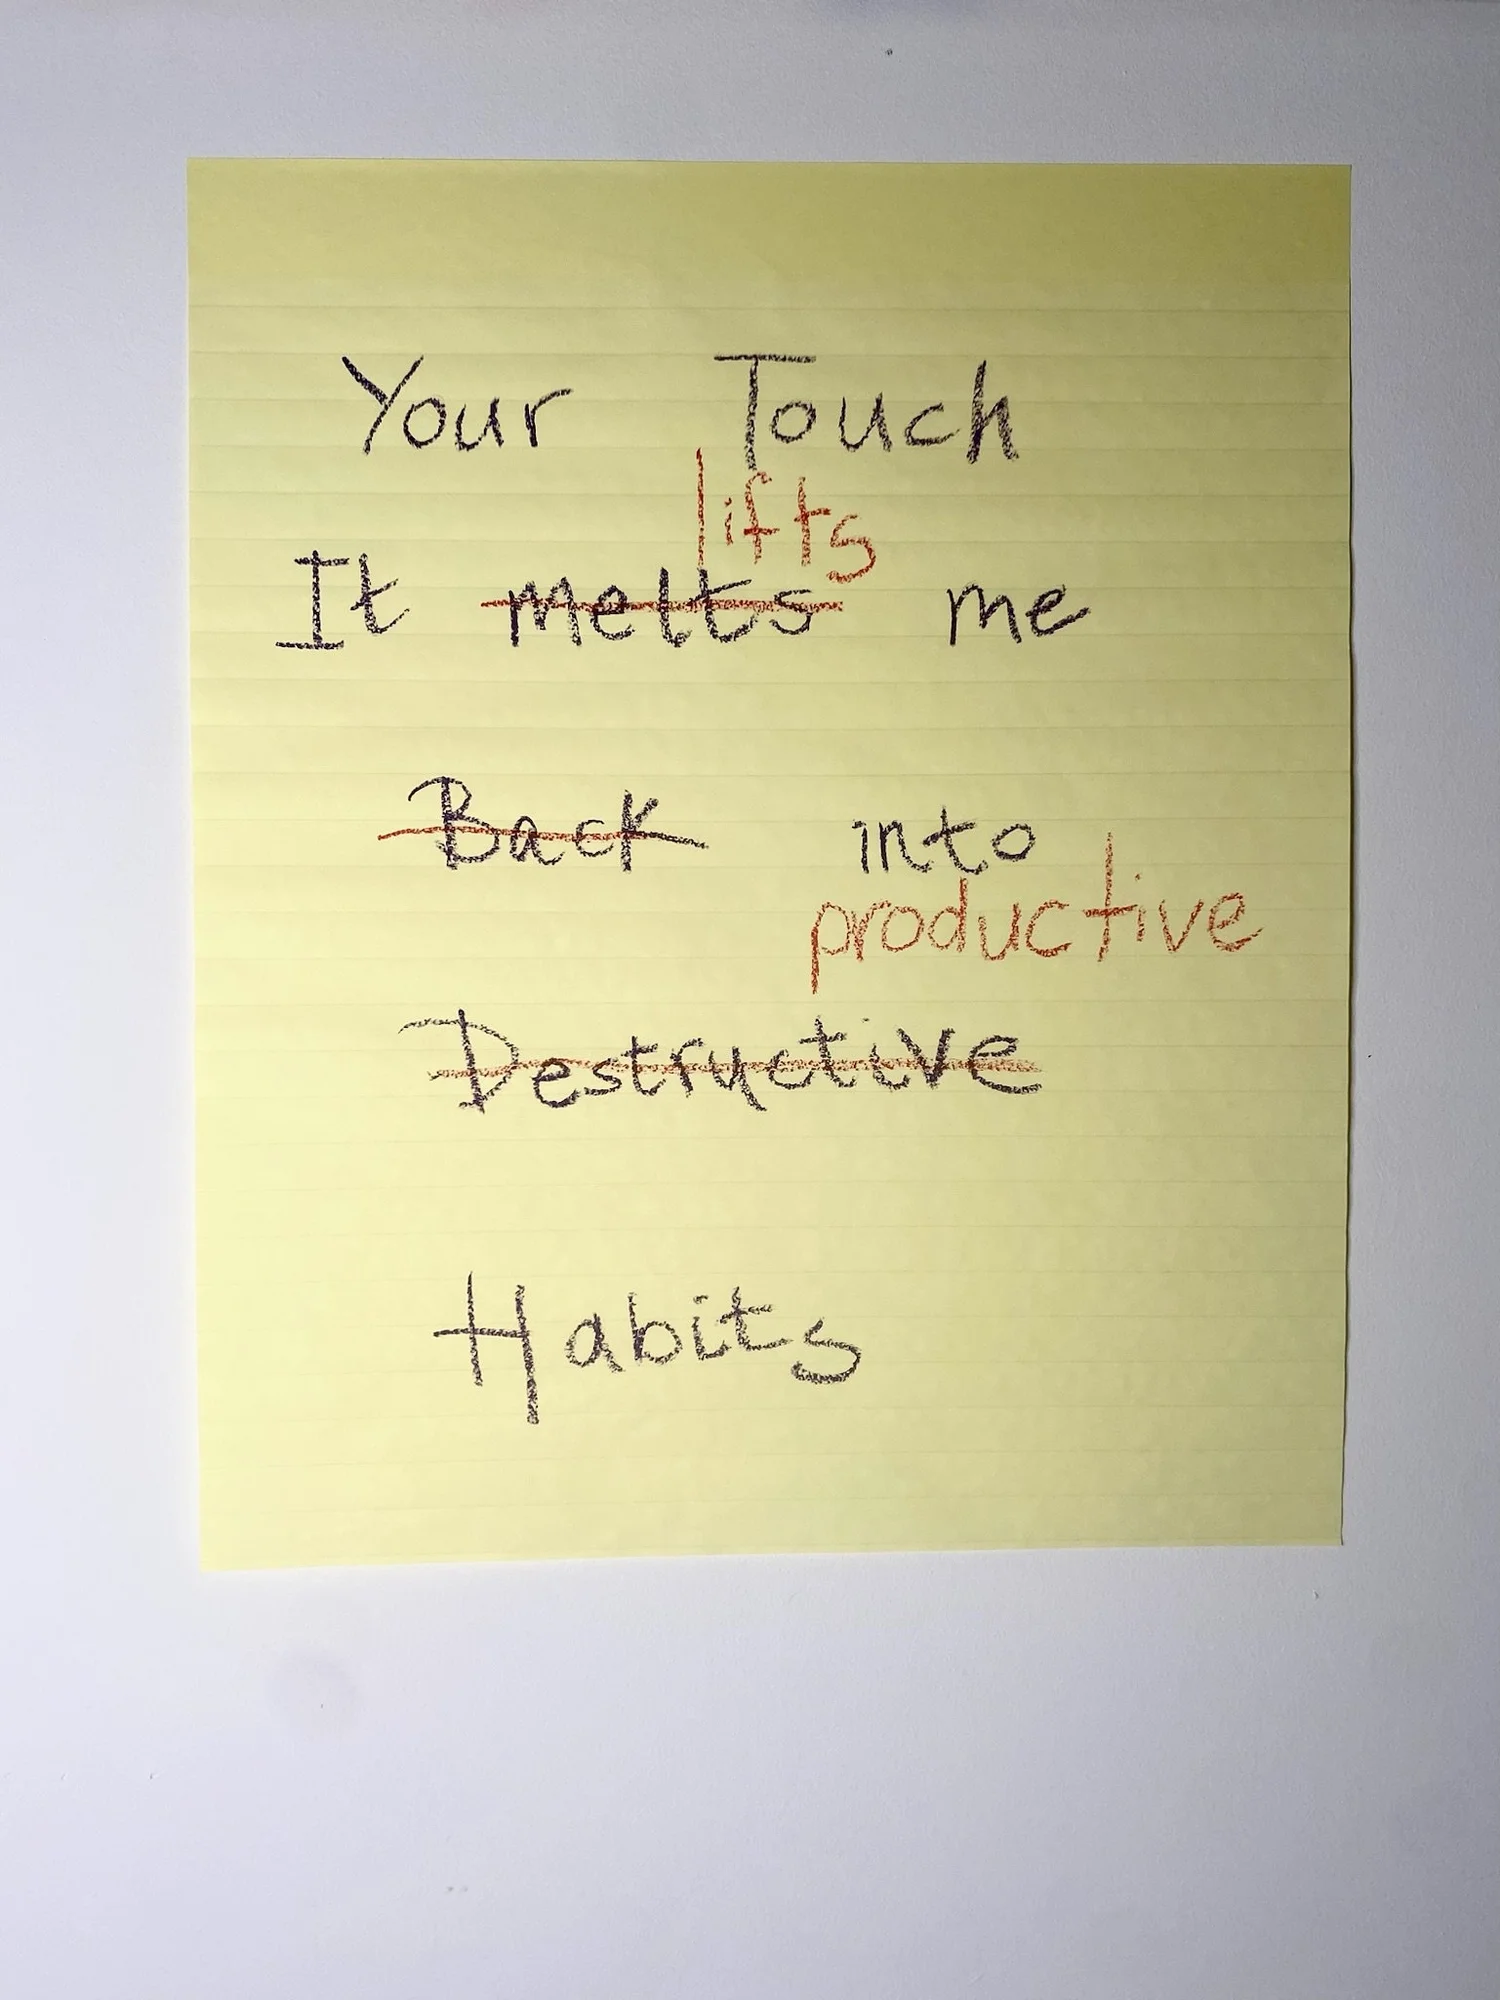 Your Touch
lifts
It melts me
Back into
productive
Destructive
Habits